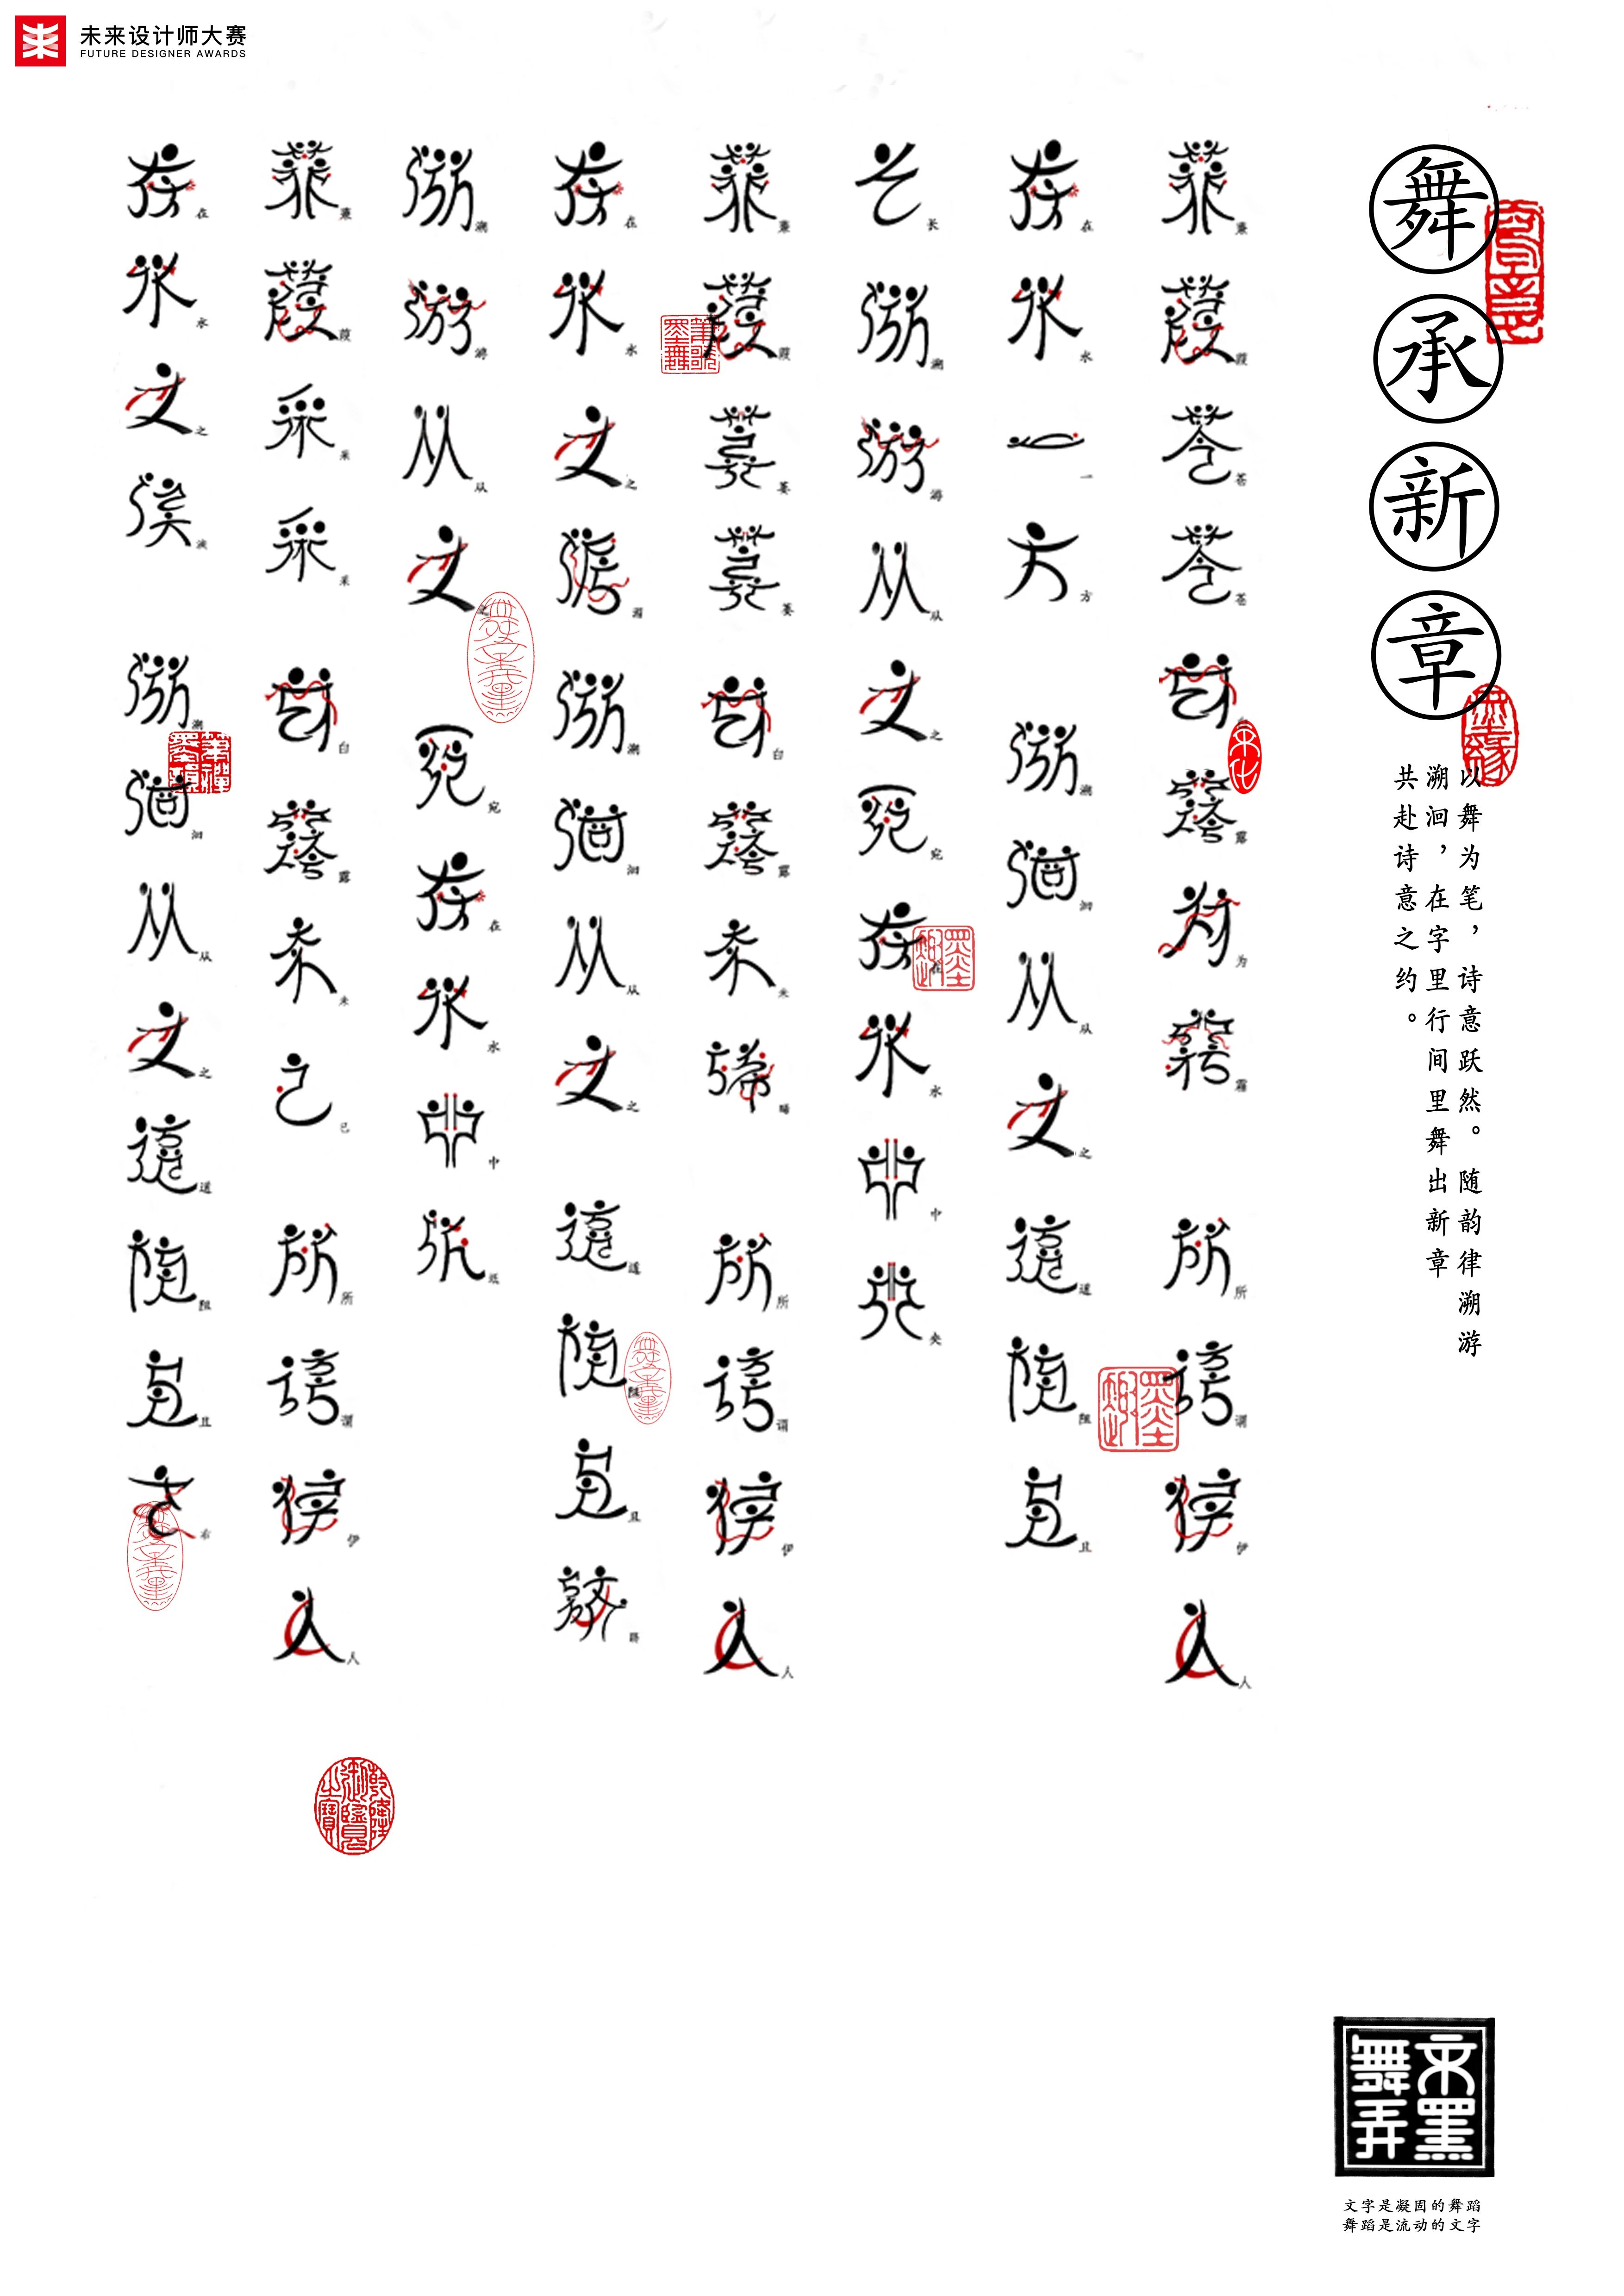 未来设计师大赛
FUTURE DESIGNER AWARDS
舞承新章
墨缘
以舞为笔，诗意跃然。随韵律溯游
溯洄，在字里行间里舞出新章
共赴诗意之约。
蒹葭苍苍 白露为霜 所谓伊人
在水一方 溯洄从之 道阻且
长 溯游从之 宛在水中央
蒹葭萋萋 白露未晞 所谓伊人
在水之湄 溯洄从之 道阻且跻
溯游从之 宛在水中坻
蒹葭采采 白露未已 所谓伊人
在水之涘 溯洄从之 道阻且右
乾隆御覽之寶
文墨
舞弄
文字是凝固的舞蹈
舞蹈是流动的文字